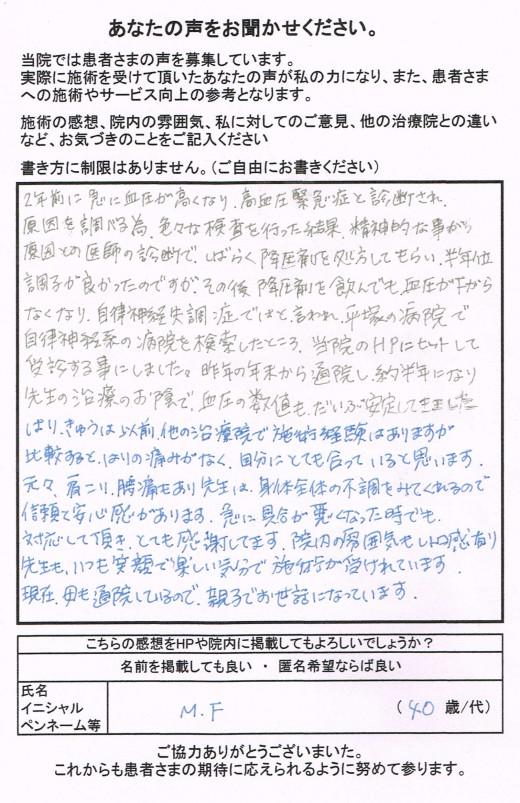 あなたの声をお聞かせください。
当院では患者さまの声を募集しています。
実際に施術を受けて頂いたあなたの声が私の力になり、また、患者さま
への施術やサービス向上の参考となります。
施術の感想、院内の雰囲気、私に対してのご意見、他の治療院との違い
など、お気づきのことをご記入ください
書き方に制限はありません。（ご自由にお書きください）
2年前に急に血圧が高くなり、高血圧緊急症と診断され、
原因を調べる為、色々な検査を行った結果、精神的な事から
原因との医師の診断で、しばらく降圧剤を処方してもらい、半年位
調子が良かったのですが、その後降圧剤を飲んでも血圧が下がら
なくなり、自律神経失調症ではと言われ、平塚の病院で
自律神経系の病院を検索したところ、当院のHPにヒットして
受診する事にしました。昨年の年末から通院し、約半年になり
先生の治療のお陰で、血圧の数値も、だいぶ安定してきました
はり、きゅうは以前、他の治療院で施術経験はありますが
比較すると、はりの痛みがなく、自分にとても合っていると思います。
元々、肩こり、腰痛もあり先生は、身体全体の不調をみてくれるので
信頼と安心感があります。急に具合が悪くなった時でも
対応して頂き、とても感謝してます。院内の雰囲気も感有り
先生も、いつも笑顔で楽しい気分で施術が受けれています。
現在、母も通院しているので、親子でお世話になっています。
こちらの感想をHPや院内に掲載してもよろしいでしょうか？
名前を掲載しても良い ・ 匿名希望ならば良い
氏名
イニシャル
ペンネーム等
M.F
（40 歳/代）
ご協力ありがとうございました。
これからも患者さまの期待に応えられるように努めて参ります。